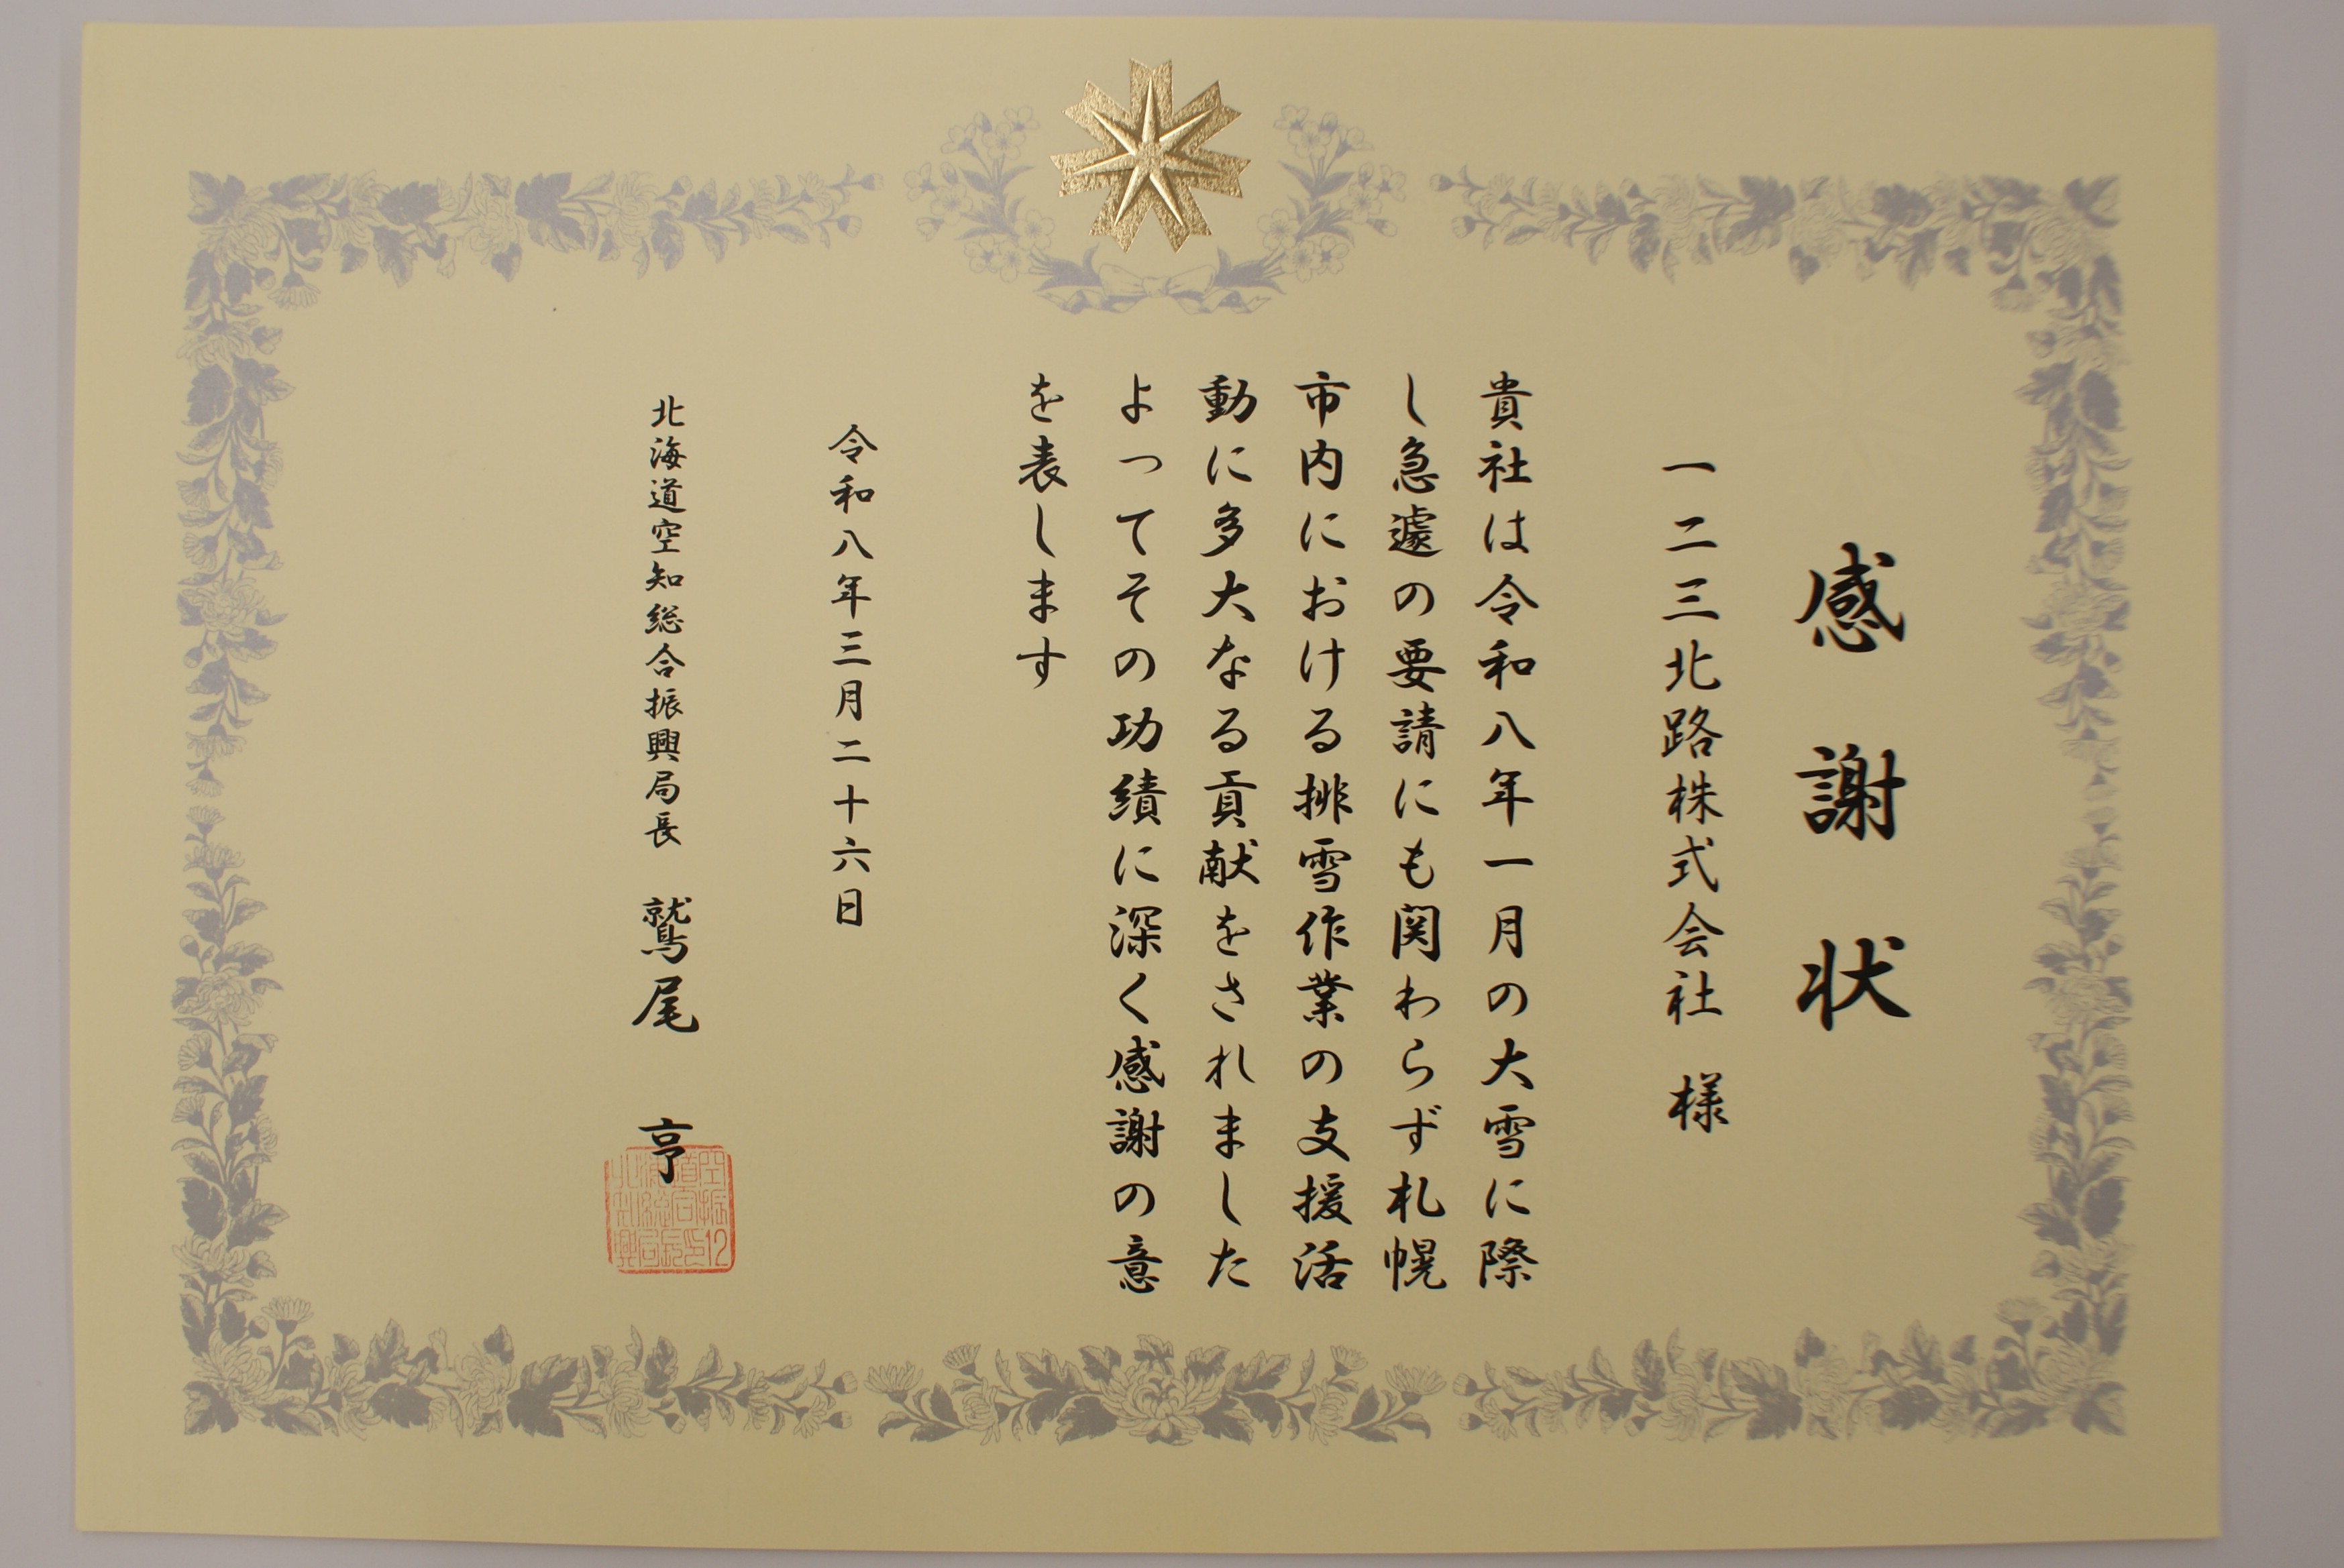 感謝状
一二三北路株式会社 様
貴社は令和八年一月の大雪に際
し急遽の要請にも関わらず札幌
市内における排雪作業の支援活
動に多大なる貢献をされました
よってその功績に深く感謝の意
を表します
令和八年三月二十六日
北海道空知総合振興局長 鷲尾 亨